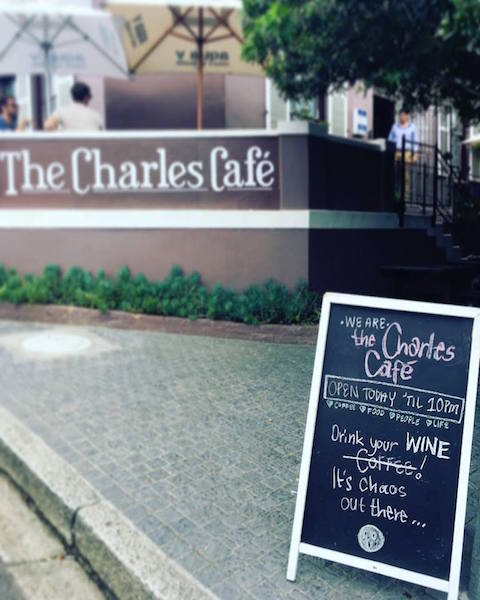 The Charles Café
WE ARE
the Charles
Café
OPEN TODAY 'TIL 10PM
COFFEE FOOD PEOPLE LIFE
Drink your WINE
COFFEE!
It's Chaos
out there...